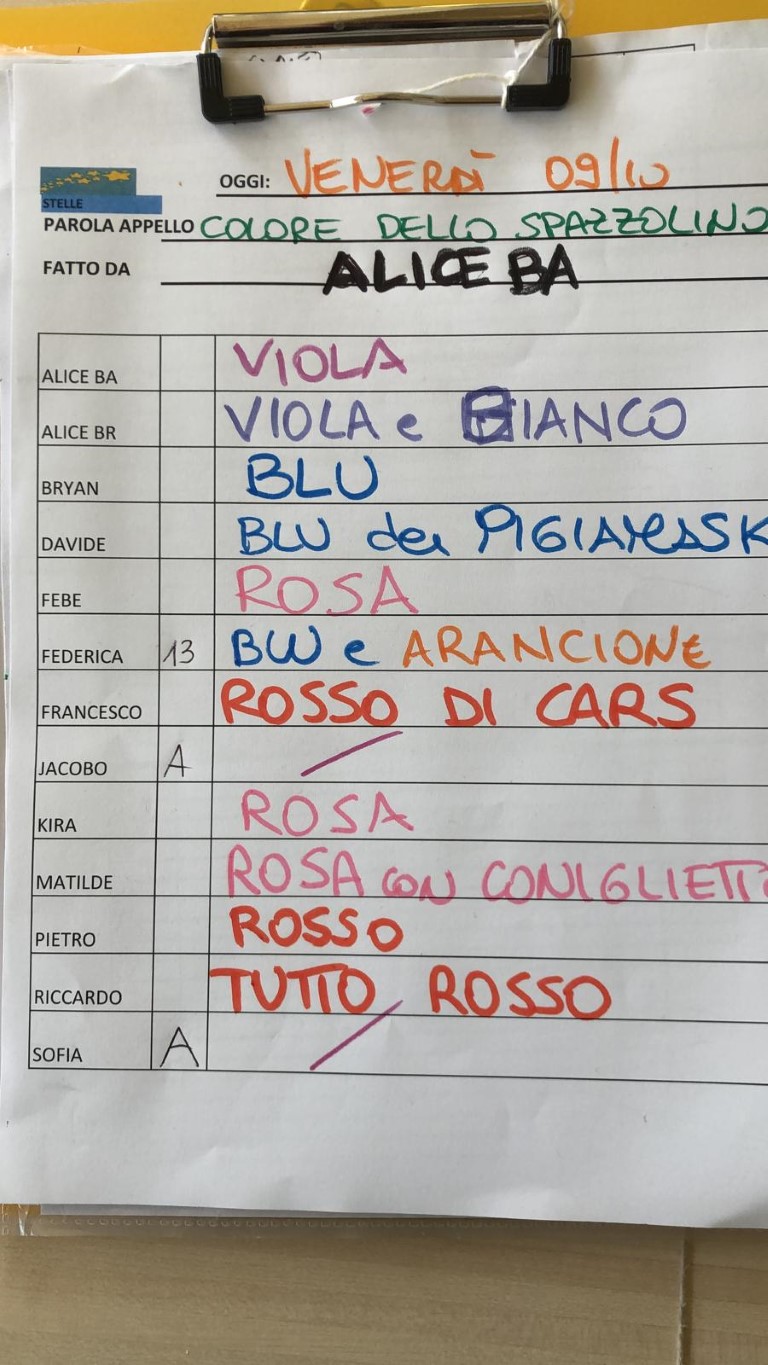 OGGI: VENERDÌ 09/10
STELLE
PAROLA APPELLO COLORE DELLO SPAZZOLINO
FATTO DA ALICE BA
ALICE BA VIOLA
ALICE BR VIOLA e BIANCO
BRYAN BLU
DAVIDE BLU dei PIGIAMASK
FEBE ROSA
FEDERICA 13 BLU e ARANCIONE
FRANCESCO ROSSO DI CARS
JACOBO A /
KIRA ROSA
MATILDE ROSA CON CONIGLIETTO
PIETRO ROSSO
RICCARDO TUTTO ROSSO
SOFIA A /